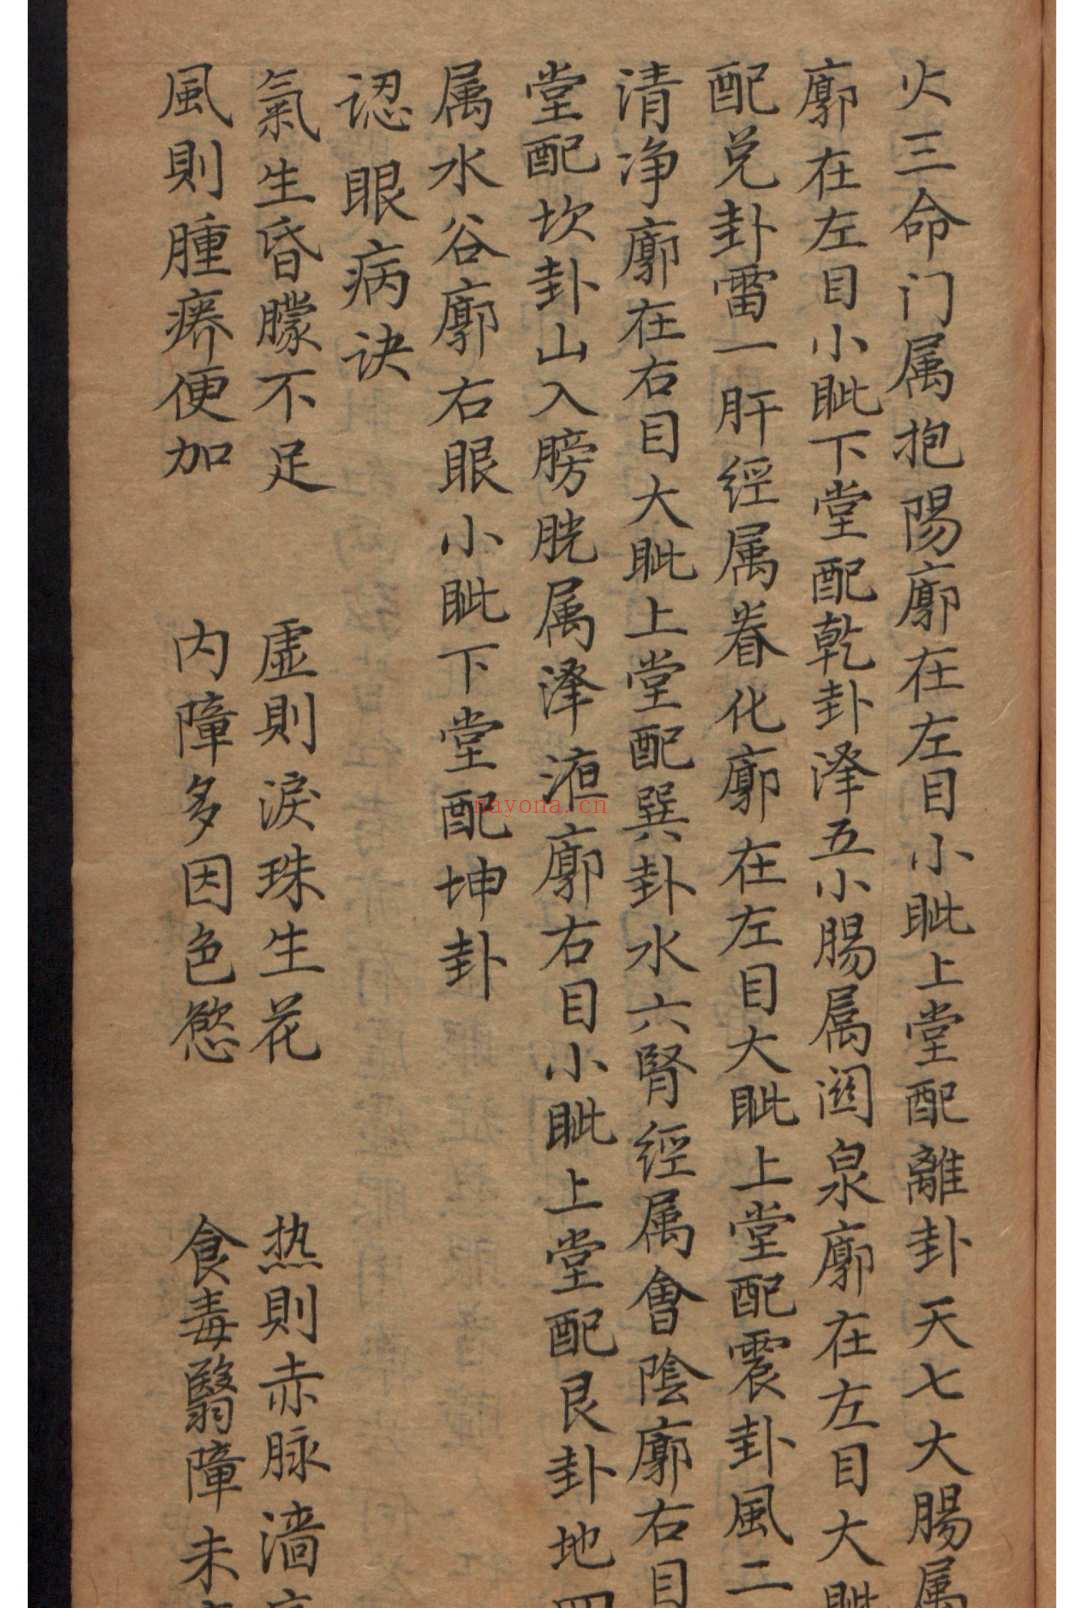 火三命门属抱陽廓在左目小眦上堂配離卦天七大腸属
廓在左目小眦下堂配乾卦泽五小腸属関泉廓在左目大眦
配兑卦雷一肝經属養化廓在左目大眦上堂配震卦風二
清净廓在右目大眦上堂配巽卦水六腎經属會陰廓右目
堂配坎卦山入膀胱属泽液廓右目小眦上堂配艮卦地四
属水谷廓右眼小眦下堂配坤卦
認眼病诀
氣生昏矇不足 虚則淚珠生花 热則赤脉濇
風則腫痹便加 内障多因色慾 食毒翳障未
nayona.cn